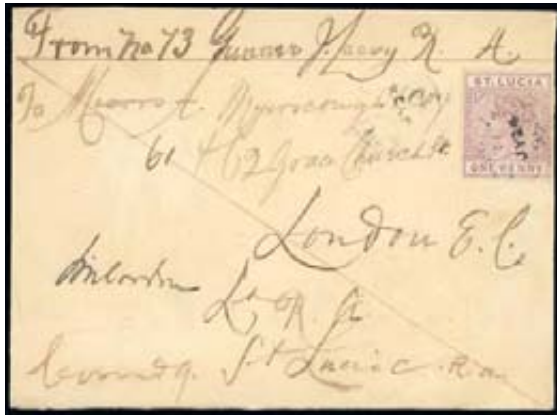 From No 73 Gunner J. Leavy R. A.
ST. LUCIA
To Messrs A. Myerscough & Coy
ONE PENNY
61 & 62 Grace Church St.
London E. C.
Lt R. A.
Comdg. St Lucia